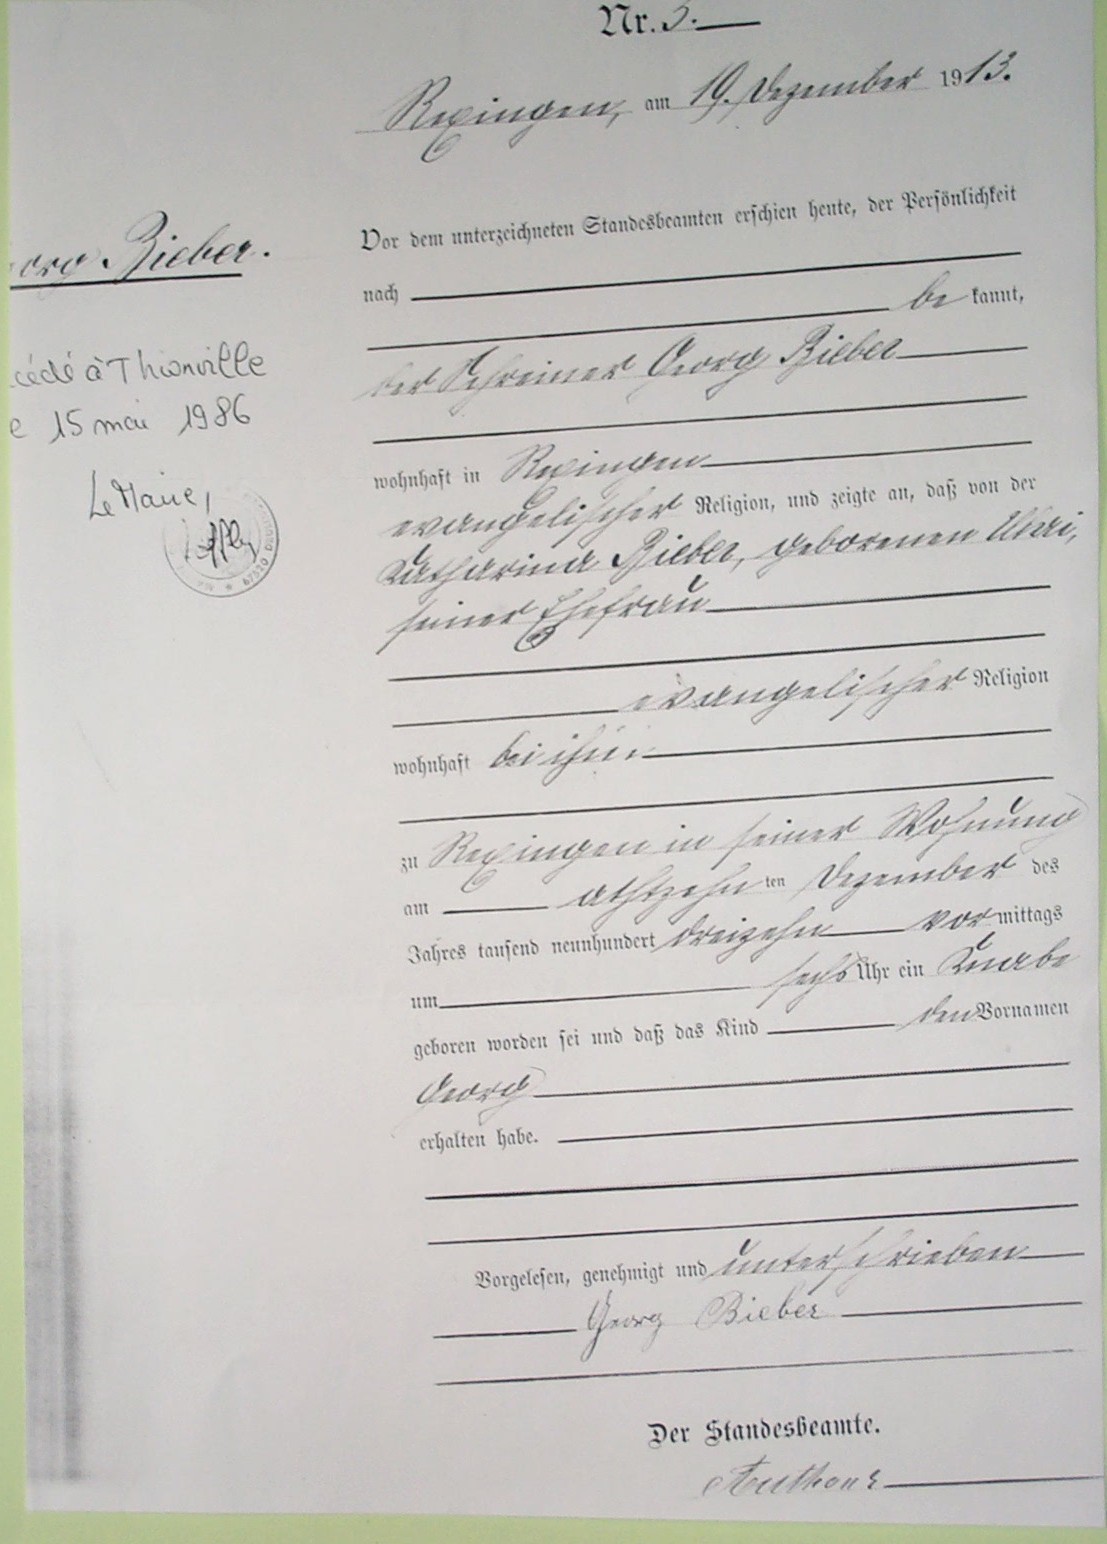 Nr. 3.
Rexingen, am 19. Dezember 1913.
Vor dem unterzeichneten Standesbeamten erschien heute, der Persönlichkeit
nach
be kannt,
der Schreiner Georg Bieber
wohnhaft in Rexingen
evangelischer Religion, und zeigte an, daß von der
Katharina Bieber, geborenen
seiner Ehefrau
evangelischer Religion
wohnhaft bei ihm
zu Rexingen in seiner Wohnung
am achtzehn ten Dezember des
Jahres tausend neunhundert dreizehn vor mittags
um sechs Uhr ein Knabe
geboren worden sei und daß das Kind den Vornamen
Georg
erhalten habe.
Vorgelesen, genehmigt und unterschrieben
Georg Bieber
Der Standesbeamte.
org Bieber.
cédé à Thionville
e 15 mai 1986
Le Maire,